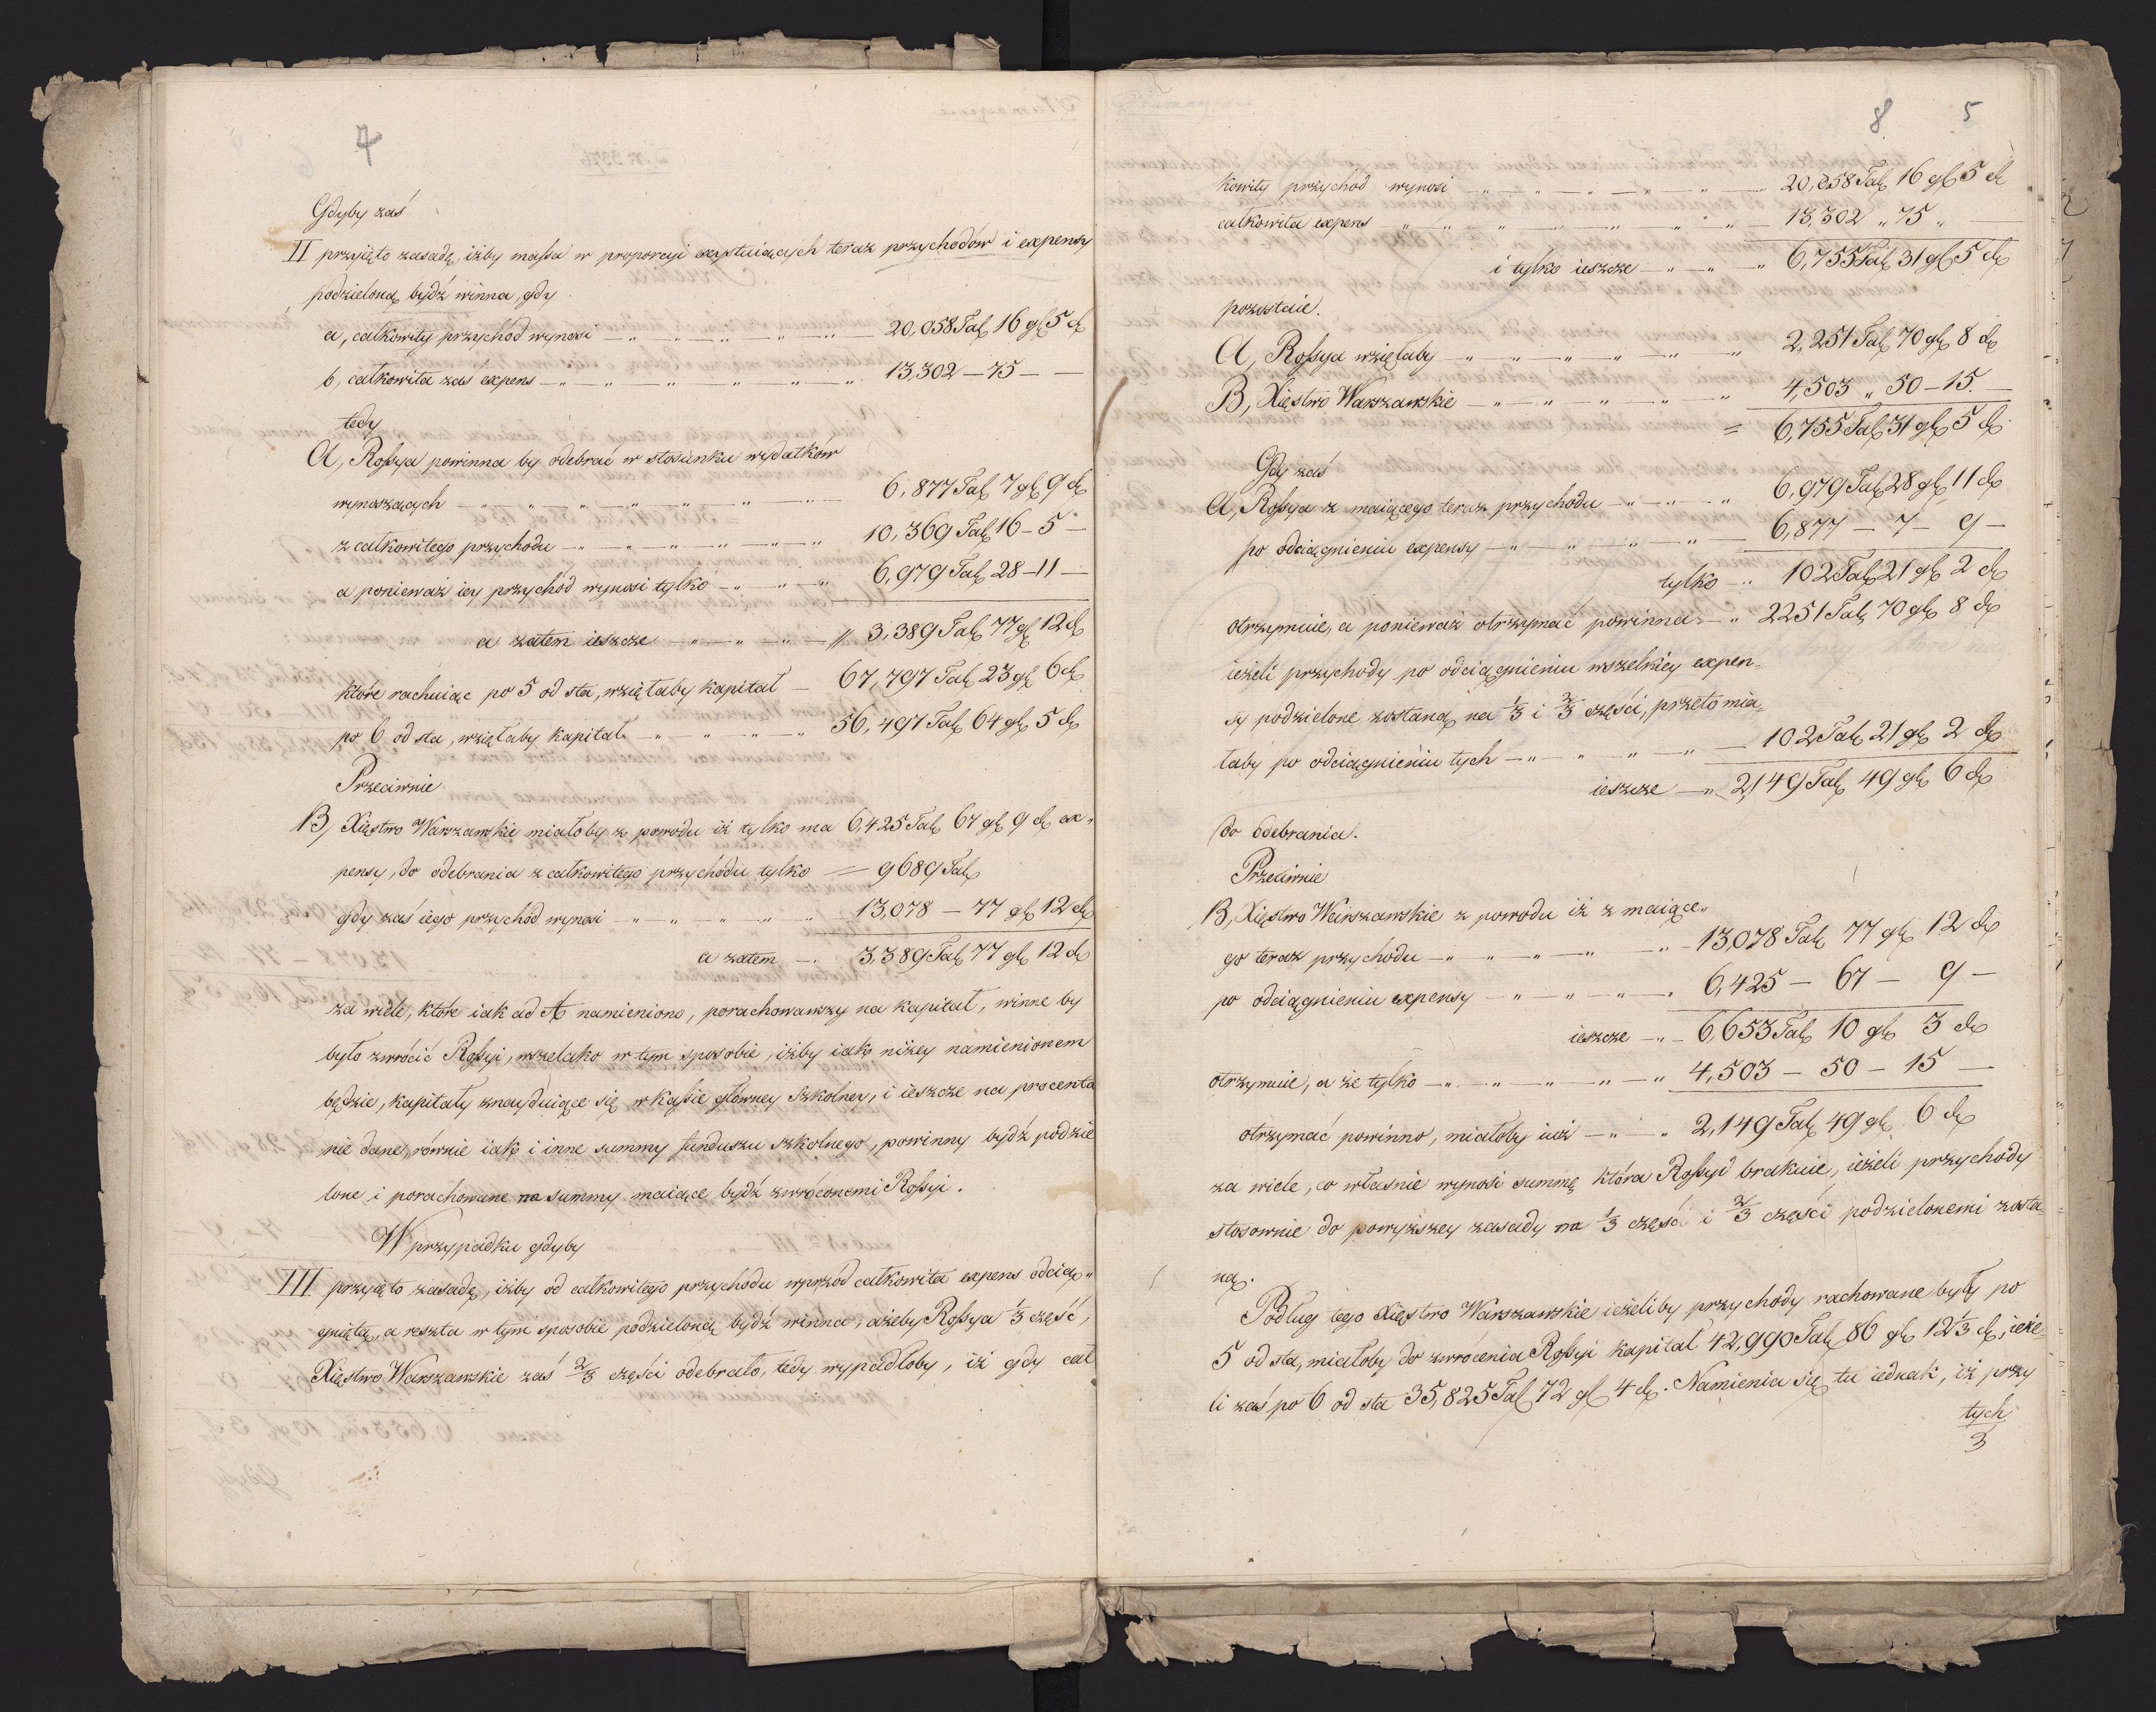 7
Gdyby zaś
II przyięto zasadę, iżby massa w proporcyi exystuiących teraz przychodów i expensy
podzieloną bydź winna, gdy
a, całkowity przychód wynosi — „ — „ — „ — „ — „ — 20,058 Tal. 16 gl. 5 d.
b, całkowita zaś expens — „ — „ — „ — „ — „ — 13,302 — 75 — —
tedy
A, Rossya powinna by odebrać w stosunku wydatków
wynoszących — „ — „ — „ — „ — „ — 6,877 Tal. 7 gl. 9 d.
z całkowitego przychodu — „ — „ — „ — „ — 10,369 Tal. 16 – 5 —
a ponieważ iey przychód wynosi tylko — „ — „ — 6,979 Tal. 28 – 11 —
a zatem ieszcze — „ — „ — 3,389 Tal. 77 gl. 12 d.
które rachuiąc po 5 od sta, wzięłaby kapitał — 67,797 Tal. 23 gl. 6 d.
po 6 od sta, wzięłaby kapitał — „ — „ — „ — 56,497 Tal. 64 gl. 5 d.
Przeciwnie
B, Xięstwo Warszawskie miałoby z powodu iż tylko ma 6,425 Tal. 67 gl. 9 d. ex„
pensy, do odebrania z całkowitego przychodu tylko = 9689 Tal.
gdy zaś iego przychód wynosi — „ — „ — „ — „ 13,078 — 77 gl. 12 d.
a zatem — „ 3,389 Tal. 77 gl. 12 d.
za wiele, które iak ad A namieniono, porachowawszy na kapitał, winne by
było zwrócić Rossyi, wszelako w tym sposobie, iżby iako niżey namienionem
będzie, kapitały znayduiące się w kassie główney Szkolney, i ieszcze na procenta
nie dane, równie iak i inne summy funduszu szkolnego, powinny bydź podzie
lone i porachowane na summy maiące bydź zwróconemi Rossyi.
W przypadku gdyby
III przyięto zasadę, iżby od całkowitego przychodu wprzód całkowita expens odcią„
gniętą, a reszta w tym sposobie podzieloną bydź winna, ażeby Rossya 1/3 część,
Xięstwo Warszawskie zaś 2/3 części odebrało, tedy wypadłoby, iż gdy cał
8 5
kowity przychód wynosi — „ — „ — „ — „ — „ — 20,058 Tal. 16 gl. 5 d.
całkowita expens — „ — „ — „ — „ — „ — 13,302 „ 75 „
i tylko ieszcze — „ — „ — „ 6,755 Tal. 31 gl. 5 d.
pozostaie.
A, Rossya wzięłaby — „ — „ — „ — „ — „ 2,251 Tal. 70 gl. 8 d.
B, Xięstwo Warszawskie — „ — „ — „ — „ — „ 4,503 „ 50 – 15. —
= 6,755 Tal. 31 gl. 5 d.
Gdy zaś
A, Rossya z maiącego teraz przychodu — „ — „ — „ 6,979 Tal. 28 gl. 11 d.
po odciągnieniu expensy — „ — „ — „ — „ — 6,877 — 7 — 9 —
tylko — „ 102 Tal. 21 gl. 2 d.
otrzymuie, a ponieważ otrzymać powinna — „ 2251 Tal. 70 gl. 8 d.
ieżeli przychody po odciągnieniu wszelkiey expen=
sy podzielone zostaną na 1/3 i 2/3 części, przeto mia=
łaby po odciągnieniu tych — „ — „ — „ — „ — 102 Tal. 21 gl. 2 d.
ieszcze — „ 2,149 Tal. 49 gl. 6 d.
do odebrania.
Przeciwnie
B, Xięstwo Warszawskie z powodu iż z maiące„
go teraz przychodu — „ — „ — „ — „ — „ — 13,078 Tal. 77 gl. 12 d.
po odciągnieniu expensy — „ — „ — „ — „ 6,425 — 67 — 9 —
ieszcze — „ — 6,653 Tal. 10 gl. 3 d.
otrzymuie, a że tylko — „ — „ — „ — „ — „ 4,503 — 50 — 15 —
otrzymać powinno, miałoby iuż — „ — „ 2,149 Tal. 49 gl. 6 d.
za wiele, co własnie wynosi summę która Rossyi brakuie, ieżeli przychody
stosownie do powyższey zasady na 1/3 część i 2/3 części podzielonemi zosta=
ną.
Podług tego Xięstwo Warszawskie ieżeliby przychody rachowane były po
5 od sta, miałoby do zwrócenia Rossyi kapitał 42,990 Tal. 86 gl. 12 1/3 d., ieże=
li zaś po 6 od sta 35,825 Tal. 72 gl. 4 d. Namienia się tu iednak, iż przy
tych
3